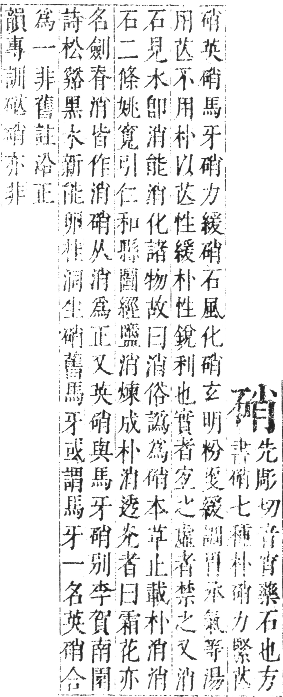 硝
先彫切音宵藥石也方
書硝七種朴硝力緊芒
硝英硝馬牙硝力緩硝石風化硝玄明粉更緩調胃承氣等湯
用芒不用朴以芒性緩朴性銳利也實者宜之虛者禁之又消
石見水卽消能消化諸物故曰消俗譌爲硝本草止載朴消消
石二條姚寬引仁和縣圖經鹽消煉成朴消透光者曰霜花亦
名劍脊消皆作消硝从消爲正又英硝與馬牙硝別李賀南園
詩松谿黑水新龍卵桂洞生硝舊馬牙或謂馬牙一名英硝合
爲一非舊註沿正
韻專訓硭硝亦非